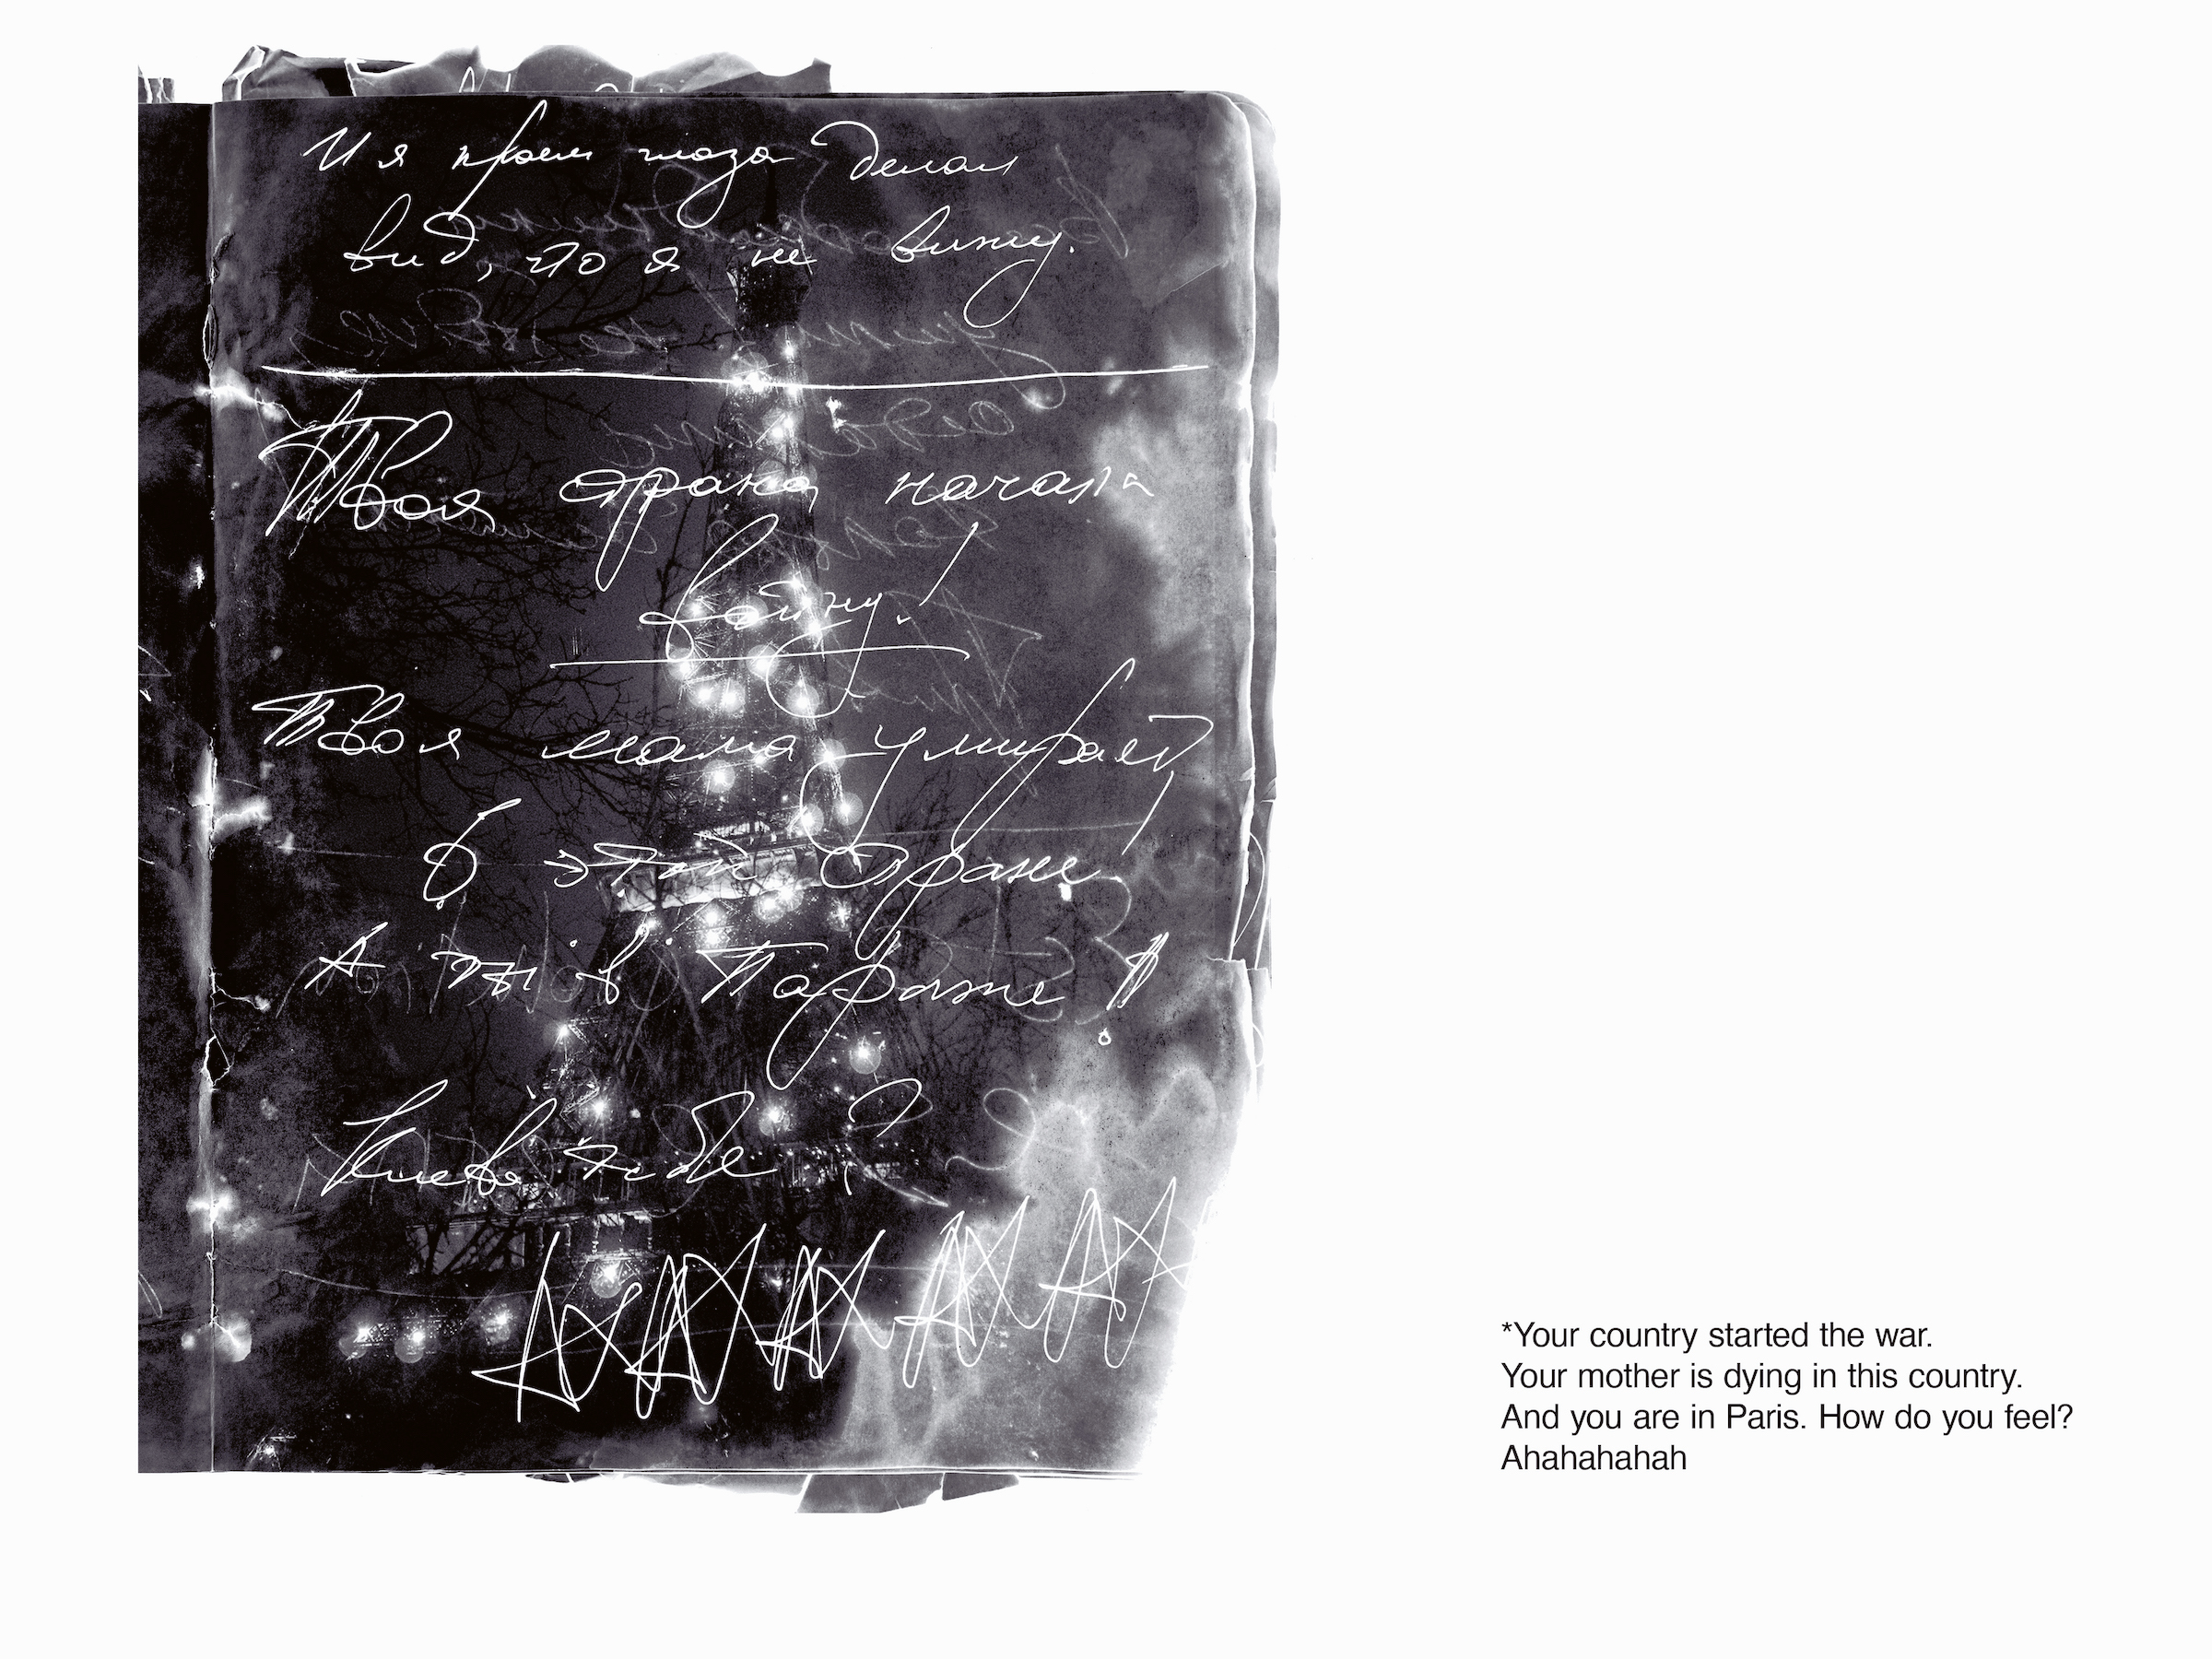 И я глаза
вид, что я не вижу.
Твоя страна начала
войну!
Твоя мама умирает
в этой стране!
А ты в Париже!
Клево тебе ?
АХАХАХАХАХ
*Your country started the war.
Your mother is dying in this country.
And you are in Paris. How do you feel?
Ahahahahah